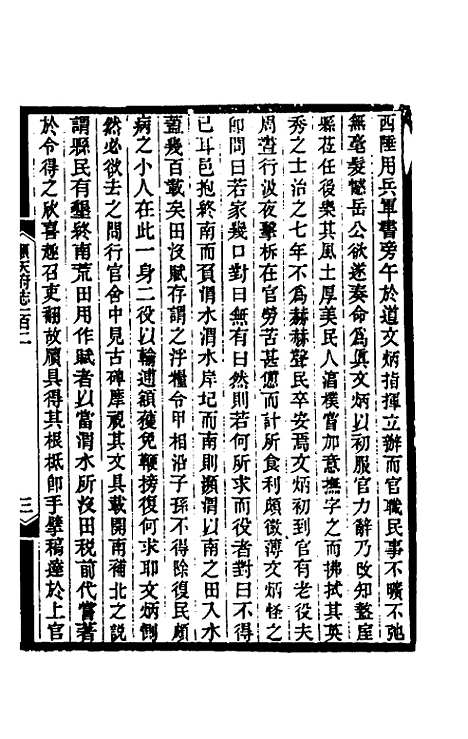 西陲用兵軍書旁午於道文炳指揮立辦而官職民事不曠不弛
無毫髮憾岳公欲遂奏命爲眞文炳以初服官力辭乃改知盩厔
縣莅任後樂其風土厚美民人湻樸嘗加意撫字之而拂拭其英
秀之士治之七年不爲赫赫聲民卒安焉文炳初到官有老役夫
周遭行汲夜擊柝在官勞苦甚慮而計所食利頗微薄文炳怪之
卽問曰若家幾口對曰無有曰然則若何所求而役者對曰不得
已耳邑抱終南而負渭水岸圮而南則瀕渭以南之田入水
蓋幾百載矣田沒賦存謂之浮糧令甲相沿子孫不得除復民頗
病之小人在此一身二役以輸逋額獲免鞭搒復何求耶文炳惻
然必欲去之閒行官舍中見古碑摩視其文具載開南補北之說
謂縣民有墾終南荒田用作賦者以當渭水所沒田稅前代嘗著
於令得之欣喜趣召吏翻故牘具得其根柢卽手擘稿達於上官
順天府志一百二
三